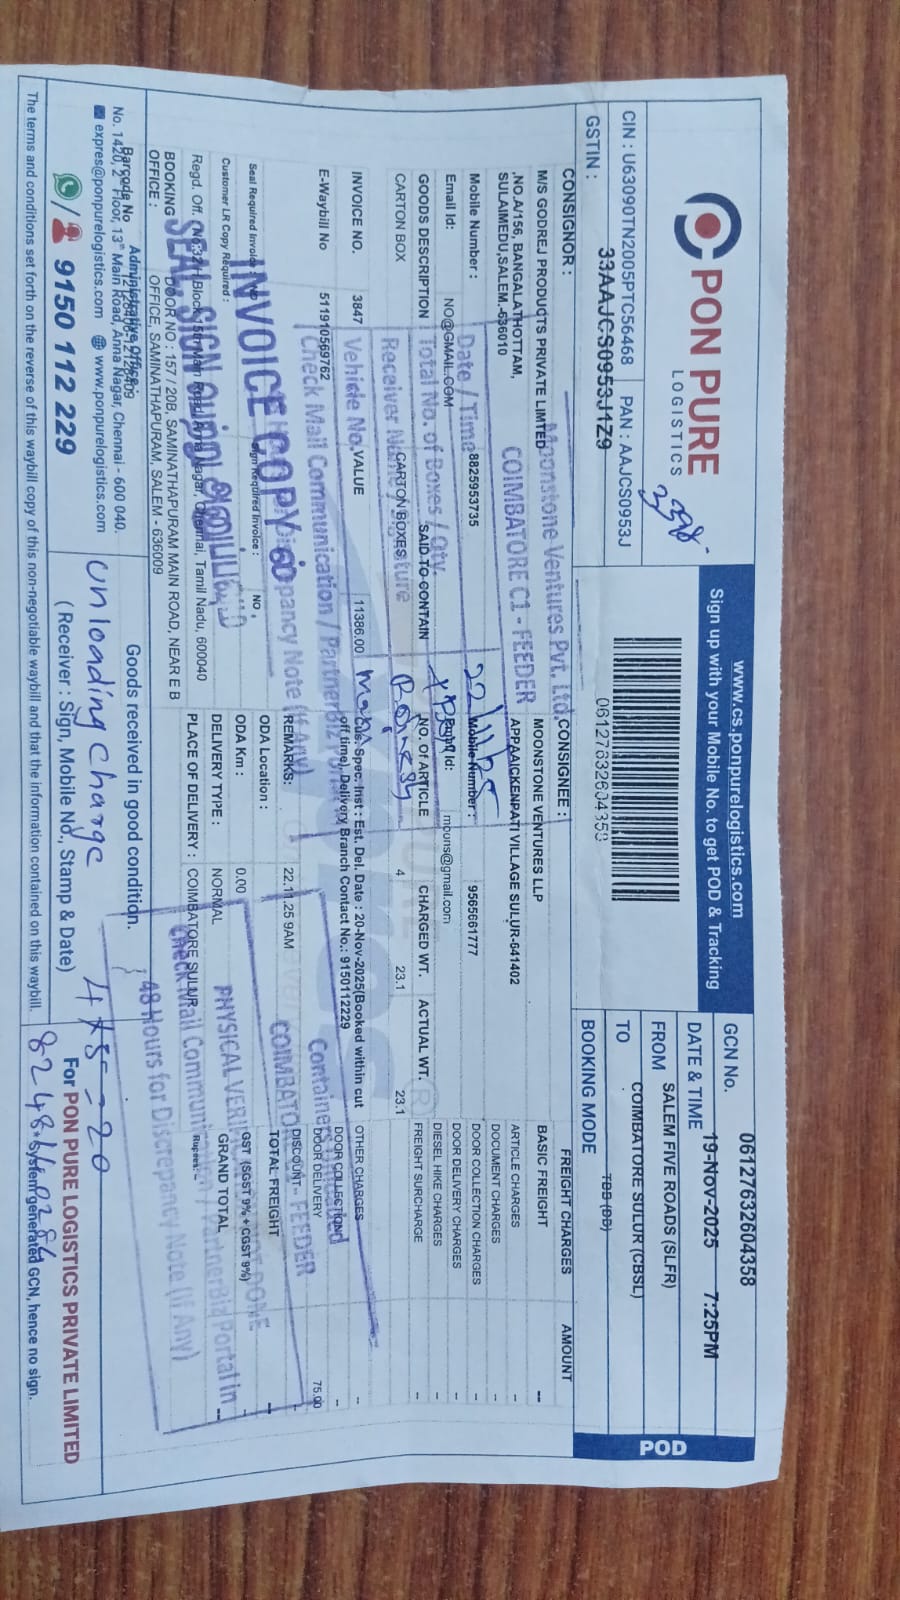 PON PURE
LOGISTICS
3598
CIN : U63090TN2005PTC56468 PAN : AAJCS0953J
GSTIN : 33AAJCS0953J1Z9
www.cs.ponpurelogistics.com
Sign up with your Mobile No. to get POD & Tracking
0612763260435
GCN No. 06127632604358
DATE & TIME 19-Nov-2025 7:25PM
FROM SALEM FIVE ROADS (SLFR)
TO COIMBATORE SULUR (CBSL)
BOOKING MODE TBB (DD)
POD
CONSIGNOR :
M/S GODREJ PRODUCTS PRIVATE LIMTED
,NO.A/156, BANGALATHOTTAM,
SULAIMEDU,SALEM-636010
Mobile Number : 8825953735
Email Id: NO@GMAIL.COM
CONSIGNEE :
MOONSTONE VENTURES LLP
APPAAICKENPATI VILLAGE SULUR-641402
Mobile Number : 9565661777
Email Id: mouns@gmail.com
Moonstone Ventures Pvt. Ltd.
COIMBATORE C1 - FEEDER
Date / Time 22/11/25
Total No. of Boxes / Qty.
Receiver Name Signature
Vehicle No.
Check Mail Communication / PartnerBiz Portal
Discrepancy Note (If Any)
GOODS DESCRIPTION SAID TO CONTAIN NO. Of ARTICLE CHARGED WT. ACTUAL WT.
CARTON BOX CARTON BOXES 4 23.1 23.1
INVOICE NO. 3847 VALUE 11386.00
E-Waybill No 511910569762
Cus. Spec. Inst : Est. Del. Date : 20-Nov-2025(Booked within cut
off time), Delivery Branch Contact No.: 9150112229
REMARKS: 22.11.25 9AM
Seal Required Invoice : NO Sign Required Invoice : NO ,
Customer LR Copy Required :
ODA Location :
ODA Km : 0.00
DELIVERY TYPE : NORMAL
PLACE OF DELIVERY : COIMBATORE SULUR
INVOICE COPY
FREIGHT CHARGES AMOUNT
BASIC FREIGHT --
ARTICLE CHARGES -
DOCUMENT CHARGES -
DOOR COLLECTION CHARGES -
DOOR DELIVERY CHARGES -
DIESEL HIKE CHARGES -
FREIGHT SURCHARGE -
OTHER CHARGES -
DOOR COLLECTION -
DOOR DELIVERY 75.00
DISCOUNT -
TOTAL FREIGHT --
GST (SGST 9% + CGST 9%) -
GRAND TOTAL --
Rupees:
COIMBATORE - FEEDER
PHYSICAL VERIFICATION NOT DONE
Check Mail Communication / PartnerBiz Portal in
48 Hours for Discrepancy Note (If Any)
BOOKING OFFICE : DOOR NO : 157 / 20B, SAMINATHAPURAM MAIN ROAD, NEAR E B
OFFICE, SAMINATHAPURAM, SALEM - 636009
Administrative Office:
No. 1420, 2nd Floor, 13th Main Road, Anna Nagar, Chennai - 600 040.
expres@ponpurelogistics.com www.ponpurelogistics.com
9150 112 229
Goods received in good condition.
unloading charge 4 x 5 = 20
( Receiver : Sign, Mobile No., Stamp & Date)
For PON PURE LOGISTICS PRIVATE LIMITED
* System generated GCN, hence no sign.
The terms and conditions set forth on the reverse of this waybill copy of this non-negotiable waybill and that the information contained on this waybill.